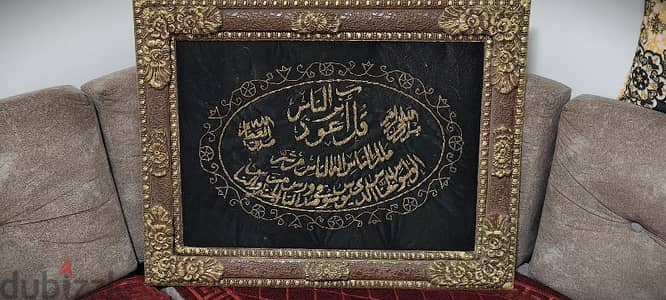 بسم الله الرحمن الرحيم
قل أعوذ برب الناس
ملك الناس إله الناس من شر
الوسواس
الذي يوسوس في صدور الناس من
صدق الله العظيم
dubizz